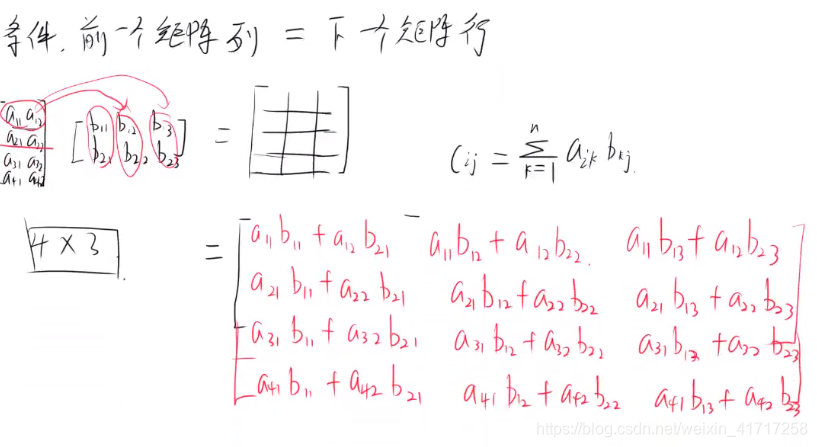 条件. 前一个矩阵列 = 下一个矩阵行
[a₁₁ a₁₂ [b₁₁ b₁₂ b₁₃ = [ ] Cᵢⱼ = Σₖ₌₁ⁿ aᵢₖ bₖⱼ.
a₂₁ a₂₂ b₂₁ b₂₂ b₂₃]
a₃₁ a₃₂
a₄₁ a₄₂]
4 × 3 . = [a₁₁ b₁₁ + a₁₂ b₂₁ a₁₁ b₁₂ + a₁₂ b₂₂. a₁₁ b₁₃ + a₁₂ b₂₃
a₂₁ b₁₁ + a₂₂ b₂₁ a₂₁ b₁₂ + a₂₂ b₂₂ a₂₁ b₁₃ + a₂₂ b₂₃
a₃₁ b₁₁ + a₃₂ b₂₁ a₃₁ b₁₂ + a₃₂ b₂₂ a₃₁ b₁₃ + a₂₂ b₂₃
a₄₁ b₁₁ + a₄₂ b₂₁ a₄₁ b₁₂ + a₄₂ b₂₂ a₄₁ b₁₃ + a₄₂ b₂₃]
https://blog.csdn.net/weixin_41717258